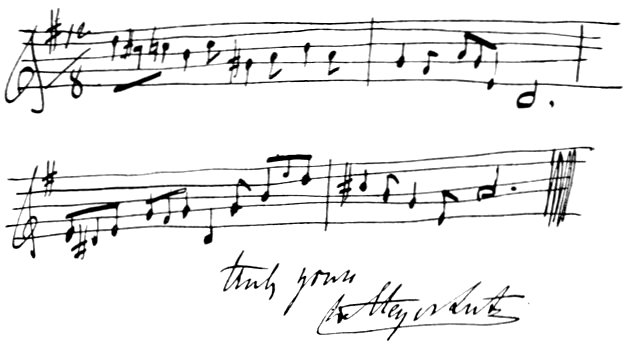 12
8
truly yours
W. Meyer Lutz